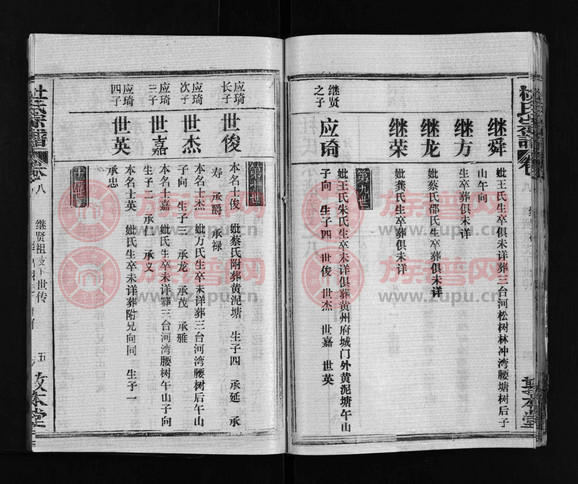 继舜
妣王氏生卒俱未详葬三台河松树林冲湾腰塘树后子
山午向
继方
生卒葬俱未详
继龙
妣蔡氏邵氏生卒葬俱未详
继荣
妣龚氏生卒葬俱未详
第九世
继贤
之子
应琦
妣王氏朱氏生卒未详俱葬黄州府城门外黄泥塘午山
子向 生子四 世俊 世杰 世嘉 世英
第十世
应琦
长子
世俊
本名士俊 妣蔡氏附葬黄泥塘 生子四 承延 承
寿 承爵 承禄
应琦
次子
世杰
本名士杰 妣万氏生卒未详葬三台河湾腰树后午山
子向 生子三 承龙 承茂 承雅
应琦
三子
世嘉
本名士嘉 妣氏生卒未详葬三台河湾腰树午山子向
生子二 承仁 承义
应琦
四子
世英
本名士英 妣氏生卒未详葬附兄向同 生子一
承忠
杜氏宗谱
卷八
继贤祖支下世传
五
敦本堂
族谱网
www.zupu.cn
族谱网
www.zupu.cn